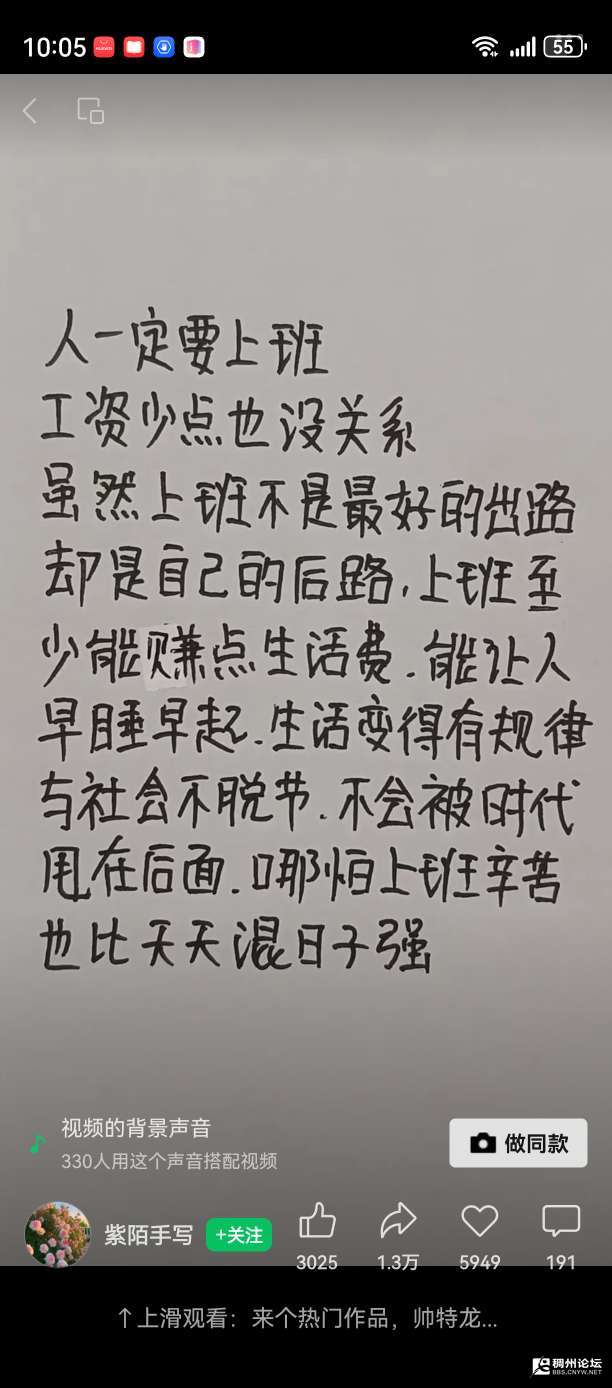 10:05
55
人一定要上班
工资少点也没关系
虽然上班不是最好的出路
却是自己的后路,上班至
少能赚点生活费.能让人
早睡早起.生活变得有规律
与社会不脱节.不会被时代
甩在后面.哪怕上班辛苦
也比天天混日子强
视频的背景声音
330人用这个声音搭配视频
做同款
紫陌手写
+关注
3025
1.3万
5949
191
↑上滑观看：来个热门作品，帅特龙...
稠州论坛
BBS.CNYW.NET